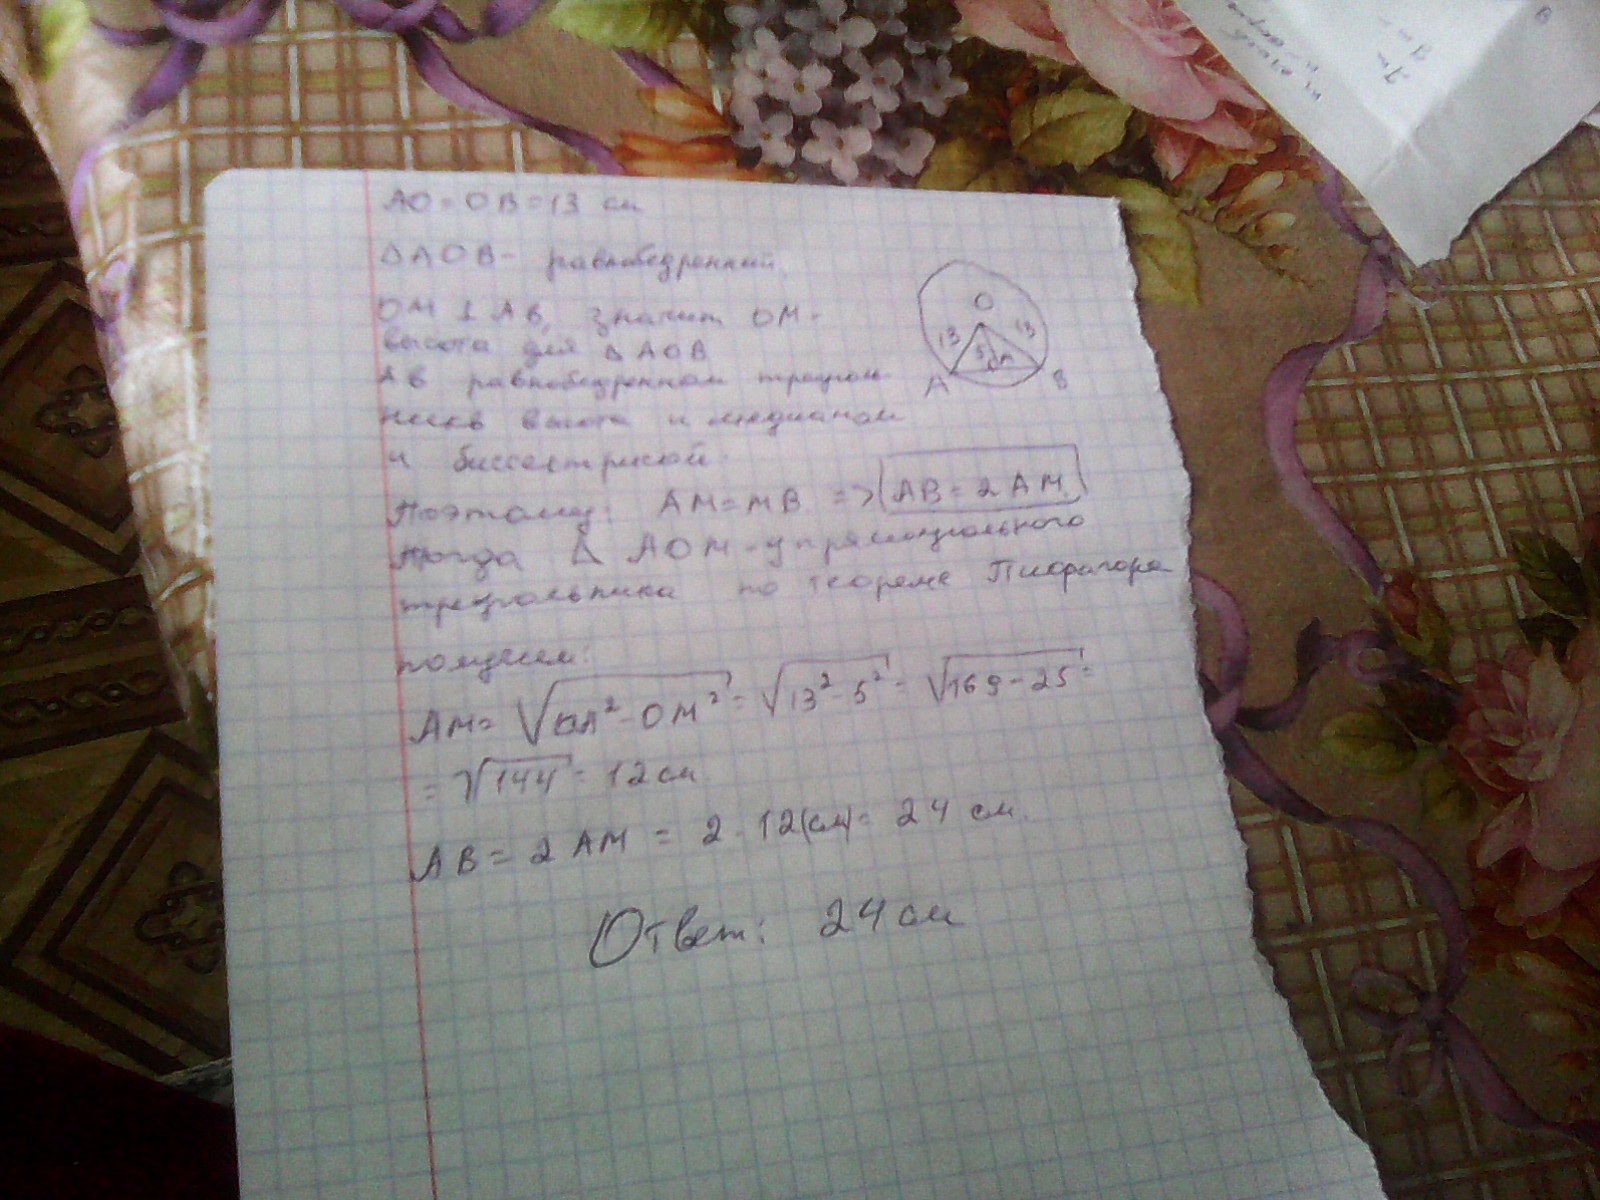 AO = OB = 13 см
Δ AOB - равнобедренный.
OM ⊥ AB, значит OM -
высота для Δ AOB
А в равнобедренном треуголь
нике высота и медианой
и биссектрисой.
Поэтому: AM = MB => AB = 2 AM.
Тогда Δ AOM - у прямоугольного
треугольника по теореме Пифагора
получим:
AM = √OA² - OM² = √13² - 5² = √169 - 25 =
= √144 = 12 см
AB = 2 AM = 2 · 12(см) = 24 см.
Ответ: 24 см
O
13 13
5
A B